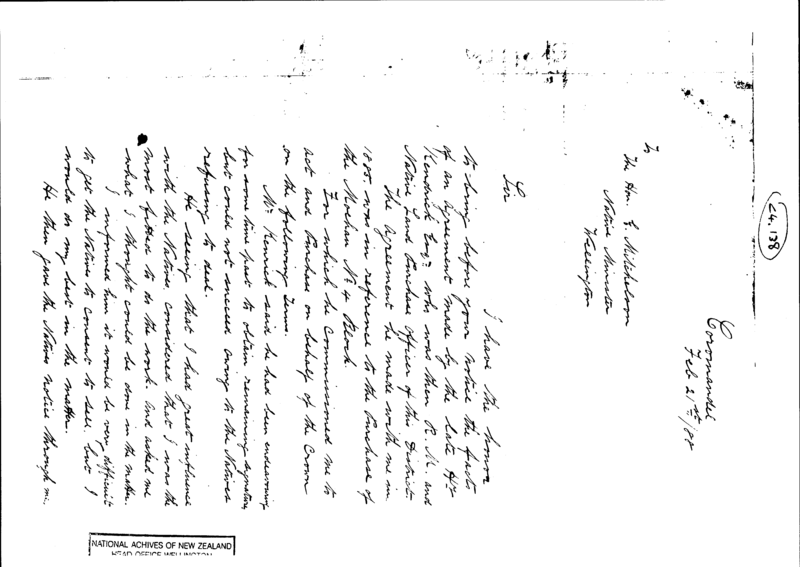 C4.138
Coromandel
Feb 21st/88
To
The Hon. E. Mitchelson
Native Minister
Wellington
Sir
I have the honor
to bring before your notice the facts
of an Agreement made by the late Hy
Kendrick Esqr who was then R. M. and
Native Land Purchase Officer of this District
The Agreement he made with me in
1885 was in reference to the Purchase of
the Moehau No 4 Block
For which he Commissioned me to
act and Purchase on behalf of the Crown
on the following Terms.
Mr Kenrick said he had been endeavouring
for some time past to obtain remaining signatures,
but could not succeed owing to the Natives
refusing to deal.
He seeing that I had great influence
with the Natives considered that I was the
most fitted to do the work. And asked me
what I thought could be done in the matter.
I informed him it would be very difficult
to get the Natives to consent to sell, but I
would do my best in the matter.
He then gave the Natives notice through me,
NATIONAL ACHIVES OF NEW ZEALAND
HEAD OFFICE WELLINGTON